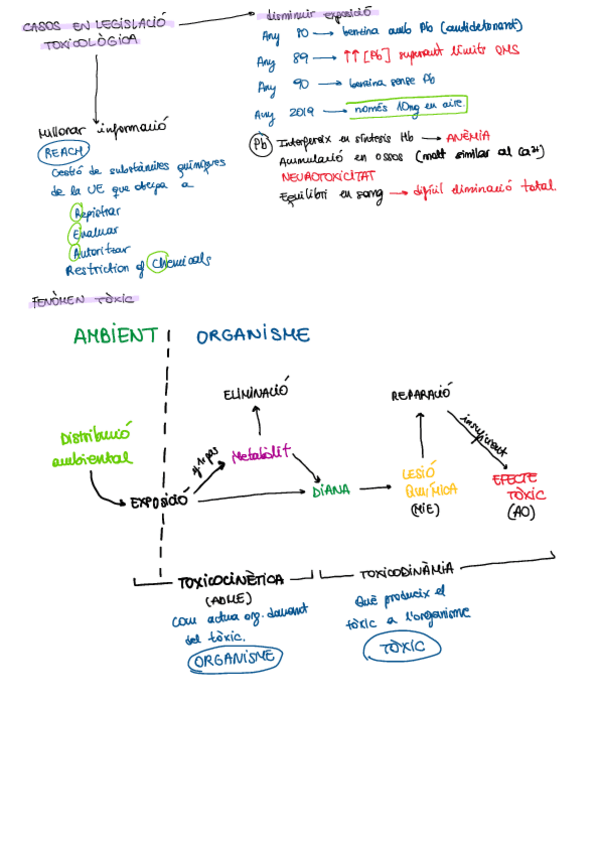 CASOS EN LEGISLACIÓ
TOXICOLÒGICA
disminuir exposició
Any 80 → benzina amb Pb (antidetonant)
Any 89 → ↑↑ [Pb] superant límits OMS
Any 90 → benzina sense Pb
Any 2019 → només 10ng en aire.
Pb Interfereix en síntesis Hb → ANÈMIA
Acumulació en ossos (molt similar al Ca²⁺)
NEUROTOXICITAT
Equilibri en sang → difícil eliminació total.
Millorar informació
REACH
Gestió de substàncies químiques
de la UE que obliga a
Registrar
Evaluar
Autoritzar
Restriction of Chemicals
FENÒMEN TÒXIC
AMBIENT
ORGANISME
ELIMINACIÓ
REPARACIÓ
Distribució
ambiental
Metabòlit
insuficient
EXPOSICIÓ
DIANA
LESIÓ
QUÍMICA
(MIE)
EFECTE
TÒXIC
(AO)
TOXICOCINÈTICA
(ADME)
com actua org. davant
del tòxic.
ORGANISME
TOXICODINÀMIA
Què produeix el
tòxic a l'organisme
TÒXIC